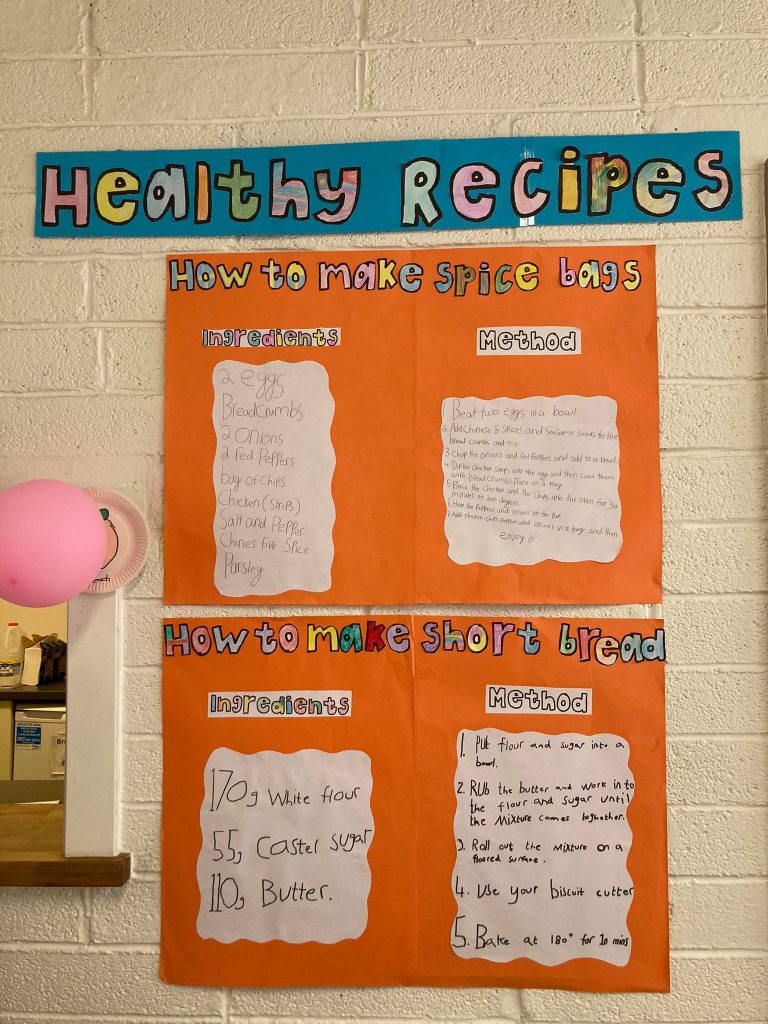 Healthy Recipes
How to make spice bags
Ingredients
2 eggs
Breadcrumbs
2 onions
2 red Peppers
bag of chips
Chicken (strips)
Salt and Pepper
Chines five Spice
Parsley
Method
1 Beat two eggs in a bowl
2. Add Chinese 5 spices and Seasame Seeds to the
bread crumbs and mix
3. Chop the onions and red Peppers and add to a bowl
4. Dip the chicken strips into the egg and then coat them
with bread crumbs. Place on a tray
5. Place the Chicken and the Chips into the oven for 30
minutes at 200 degrees
6. the Peppers and onions on the Pan
7. Add chicken and onions in a bag and then
enjoy
How to make short bread
Ingredients
170g White flour
55g Caster sugar
110g Butter.
Method
1. Put flour and sugar into a
bowl.
2. Rub the butter and work in to
the flour and sugar until
the mixture comes toghether.
3. Roll out the mixture on a
floored surface.
4. Use your biscuit cutter
5. Bake at 180° for 10 mins
each